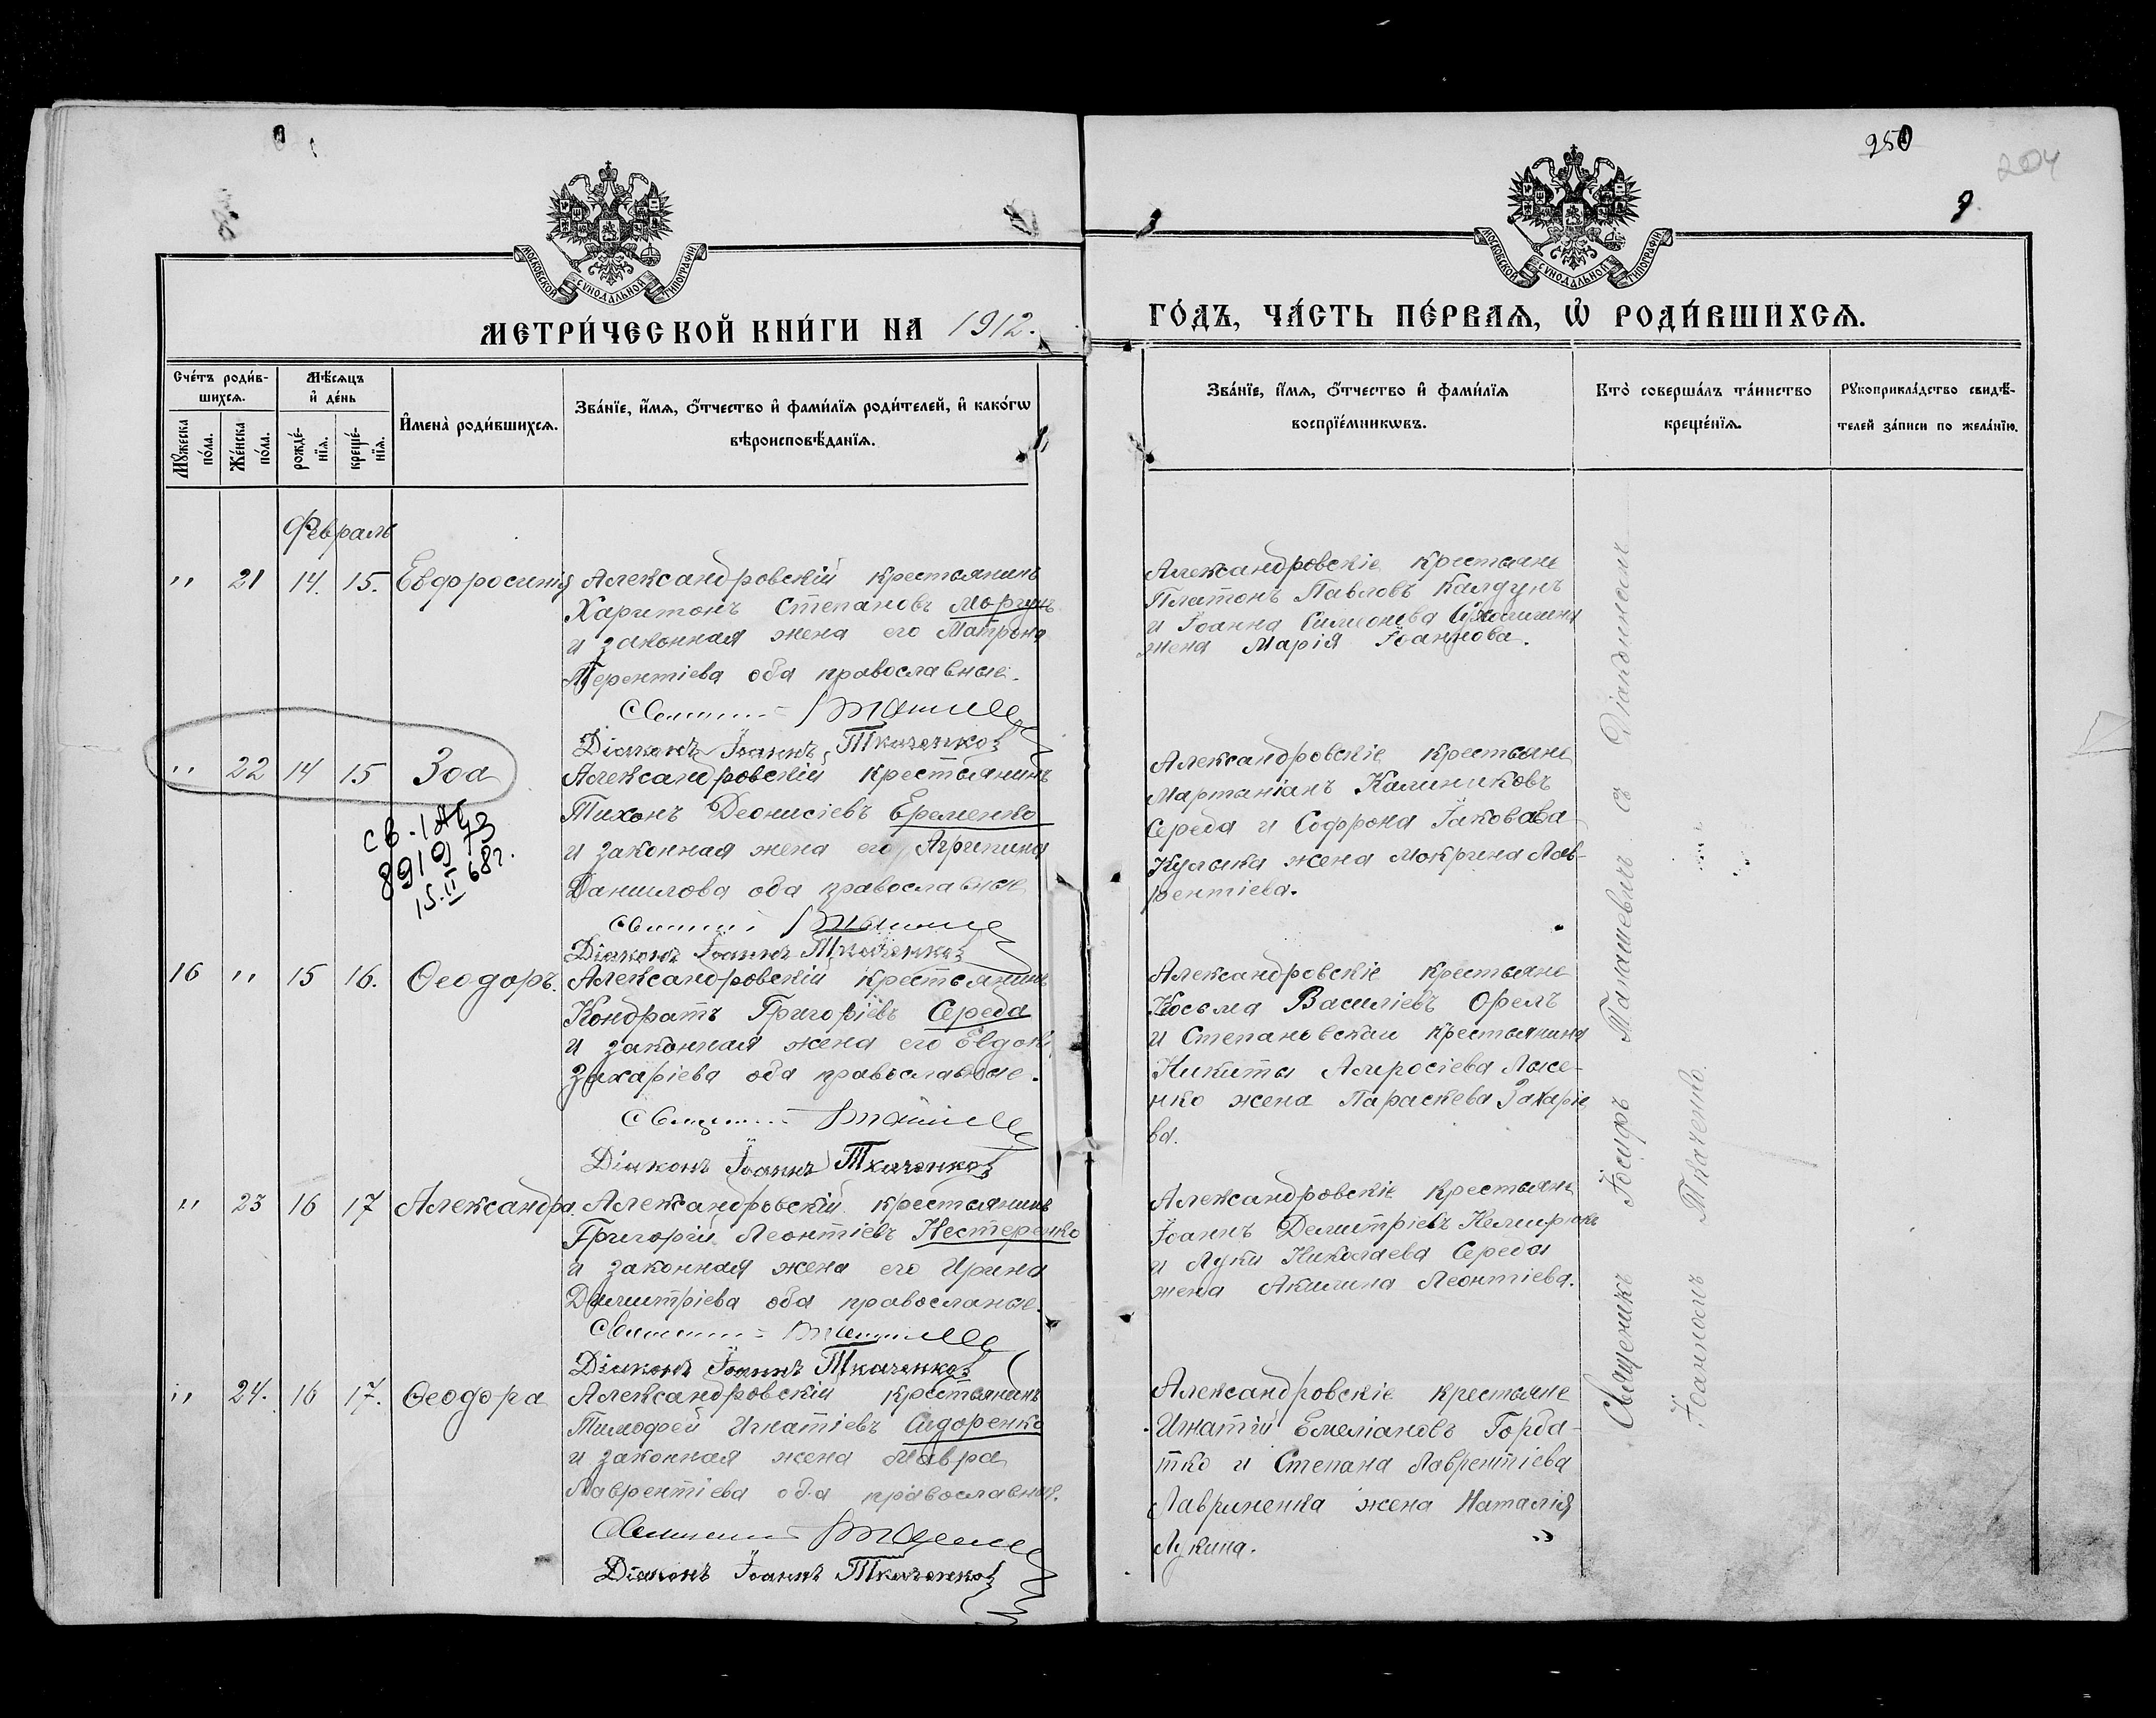 250
204
9
МОСКОВСКОЙ СѴНОДАЛЬНОЙ ТИПОГРАФІИ
МОСКОВСКОЙ СѴНОДАЛЬНОЙ ТИПОГРАФІИ
МЕТРИ́ЧЕСКОЙ КНИ́ГИ НА 1912.
ГО́ДЪ, ЧА́СТЬ ПЕ́РВАѦ, Ѡ҆ РОДИ́ВШИХСѦ.
Сче́тъ роди́в-
шихсѧ.
Мѣ́сѧцъ
и҆ де́нь
Мꙋ́жеска по́ла.
Же́нска по́ла.
рожде́-
нїѧ.
креще́-
нїѧ.
И҆мена̀ роди́вшихсѧ.
Зва́нїе, и҆́мѧ, ѻ҆́тчество и҆ фами́лїѧ роди́телей, и҆ како́гѡ
вѣроисповѣ́данїѧ.
Зва́нїе, и҆́мѧ, ѻ҆́тчество и҆ фами́лїѧ
воспрїе́мникѡвъ.
Кто̀ соверша́лъ та́инство
креще́нїѧ.
Рꙋкоприкла́дство свидѣ́-
телей за́писи по жела́нїю.
Февраль
" 21 14. 15. Евфросинія Александровскій крестьянинъ
Харитонъ Степановъ Моргунъ
и законная жена его Матрона
Терентіева оба православные.
Діаконъ Іоаннъ Ткаченко
Александровскіе крестьяне
Платонъ Павловъ Калдунъ
и Іоанна Симеонова
жена Марія Іоаннова.
" 22 14 15 Зоа Александровскій крестьянинъ
Тихонъ Деонисіевъ Еременко
и законная жена его Агрипина
Даниилова оба православные
Діаконъ Іоаннъ Ткаченко
св-
15.II 68г.
Александровскіе крестьяне
Мартаніанъ Калиниковъ
Середа и Софрона Іаковова
жена Мокрина Лав-
рентіева.
16 " 15 16. Ѳеодоръ. Александровскій крестьянинъ
Кондратъ Григоріевъ Середа
и законная жена его Евдок.
Захаріева оба православные.
Діаконъ Іоаннъ Ткаченко
Александровскіе крестьяне
Косьма Василіевъ Орелъ
и Степановскаи крестьянина
Никиты Амвросіева Лысе-
нко жена Параскева Захаріе
ва.
" 23 16 17 Александра. Александровскій крестьянинъ
Григорій Леонтіевъ Нестеренко
и законная жена его Ирина
Димитріева оба правосланые.
Діаконъ Іоаннъ Ткаченко
Александровскіе крестьяне
Іоаннъ Димитріевъ
и Луки Николаева Середы
жена Акилина Леонтіева.
" 24. 16 17. Ѳеодора Александровскій крестьянинъ
Тимофей Игнатіевъ Сидоренко
и законная жена Мавра
Лаврентіева оба православные.
Діаконъ Іоаннъ Ткаченко
Александровскіе крестьяне
Игнатій Емеліановъ Горба-
тко и Степана Лаврентіева
Лавриненка жена Наталія
Лукина.
Священникъ Іосифъ Танашевичъ съ Діакономъ
Іоанномъ Ткаченко.